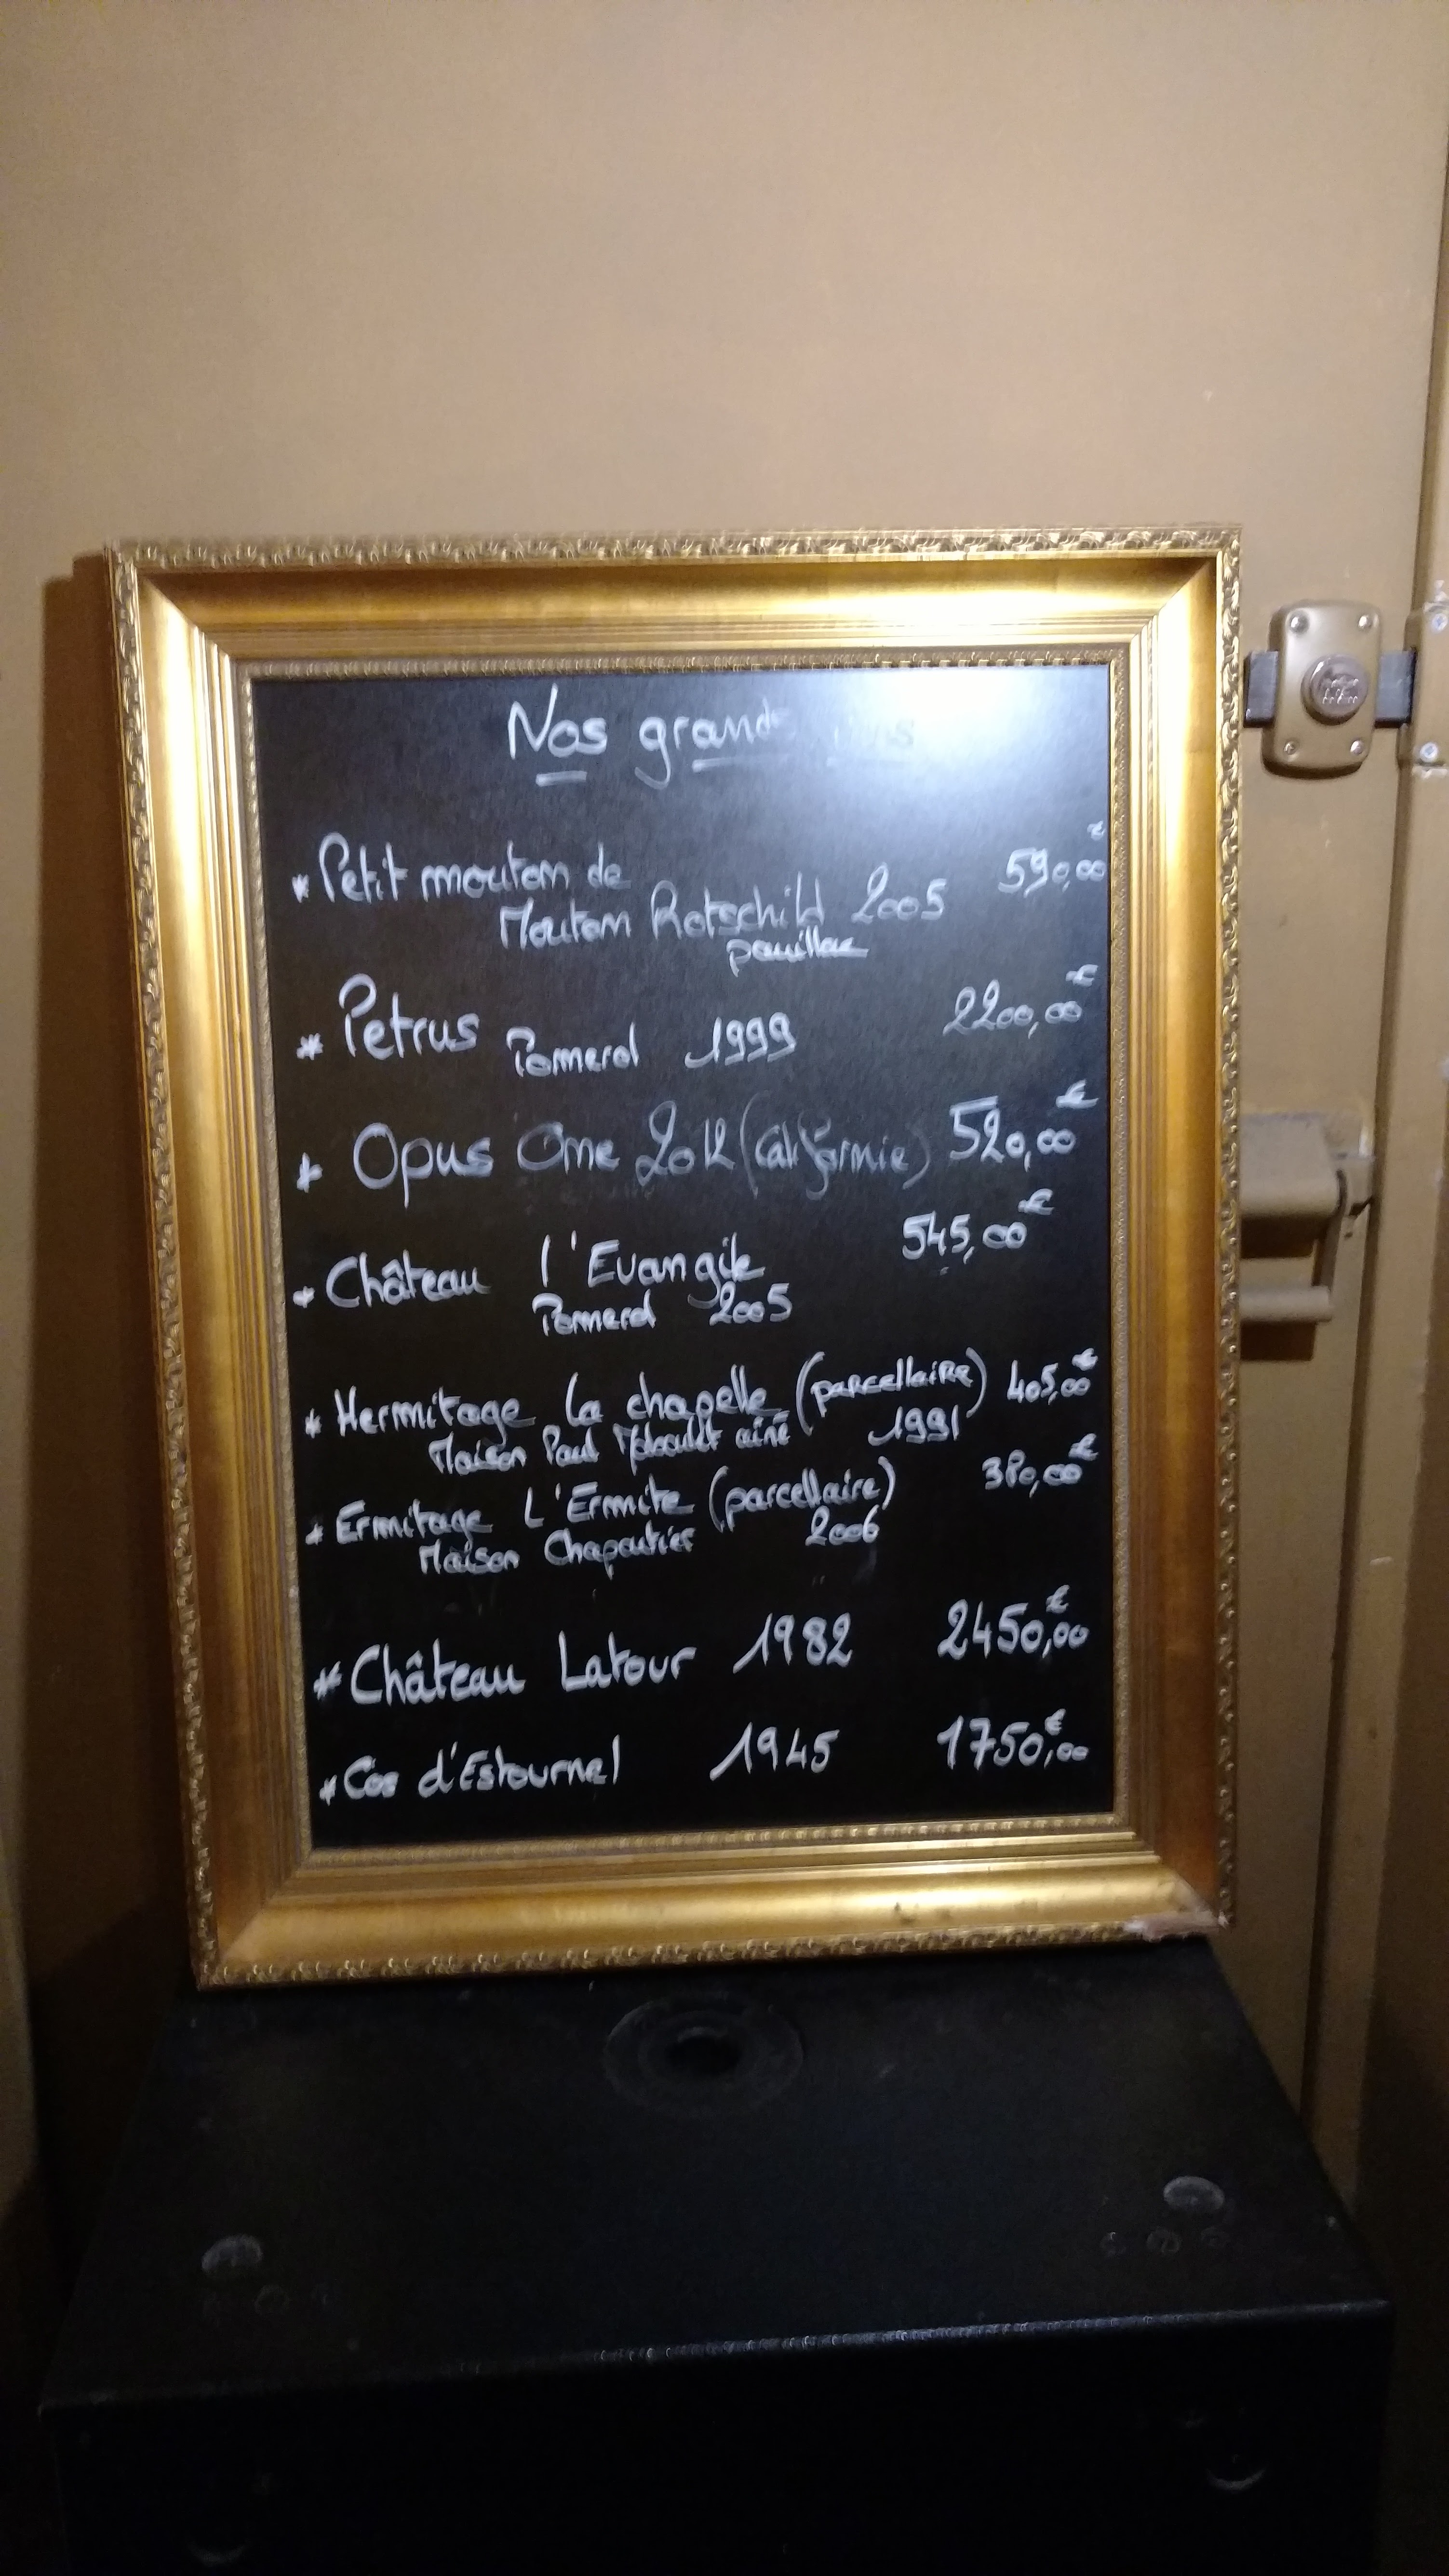 Nos grands vins
* Petit mouton de
Mouton Rotschild 2005 590,00 €
pauillac
* Petrus Pomerol 1999 2200,00 €
* Opus One 2012 (Californie) 520,00 €
* Château l'Evangile 545,00 €
Pomerol 2005
* Hermitage la chapelle (parcellaire) 405,00 €
Maison Paul ainé 1991
* Ermitage L'Ermite (parcellaire) 380,00 €
Maison Chapoutier 2006
* Château Latour 1982 2450,00 €
* Cos d'Estournel 1945 1750,00 €